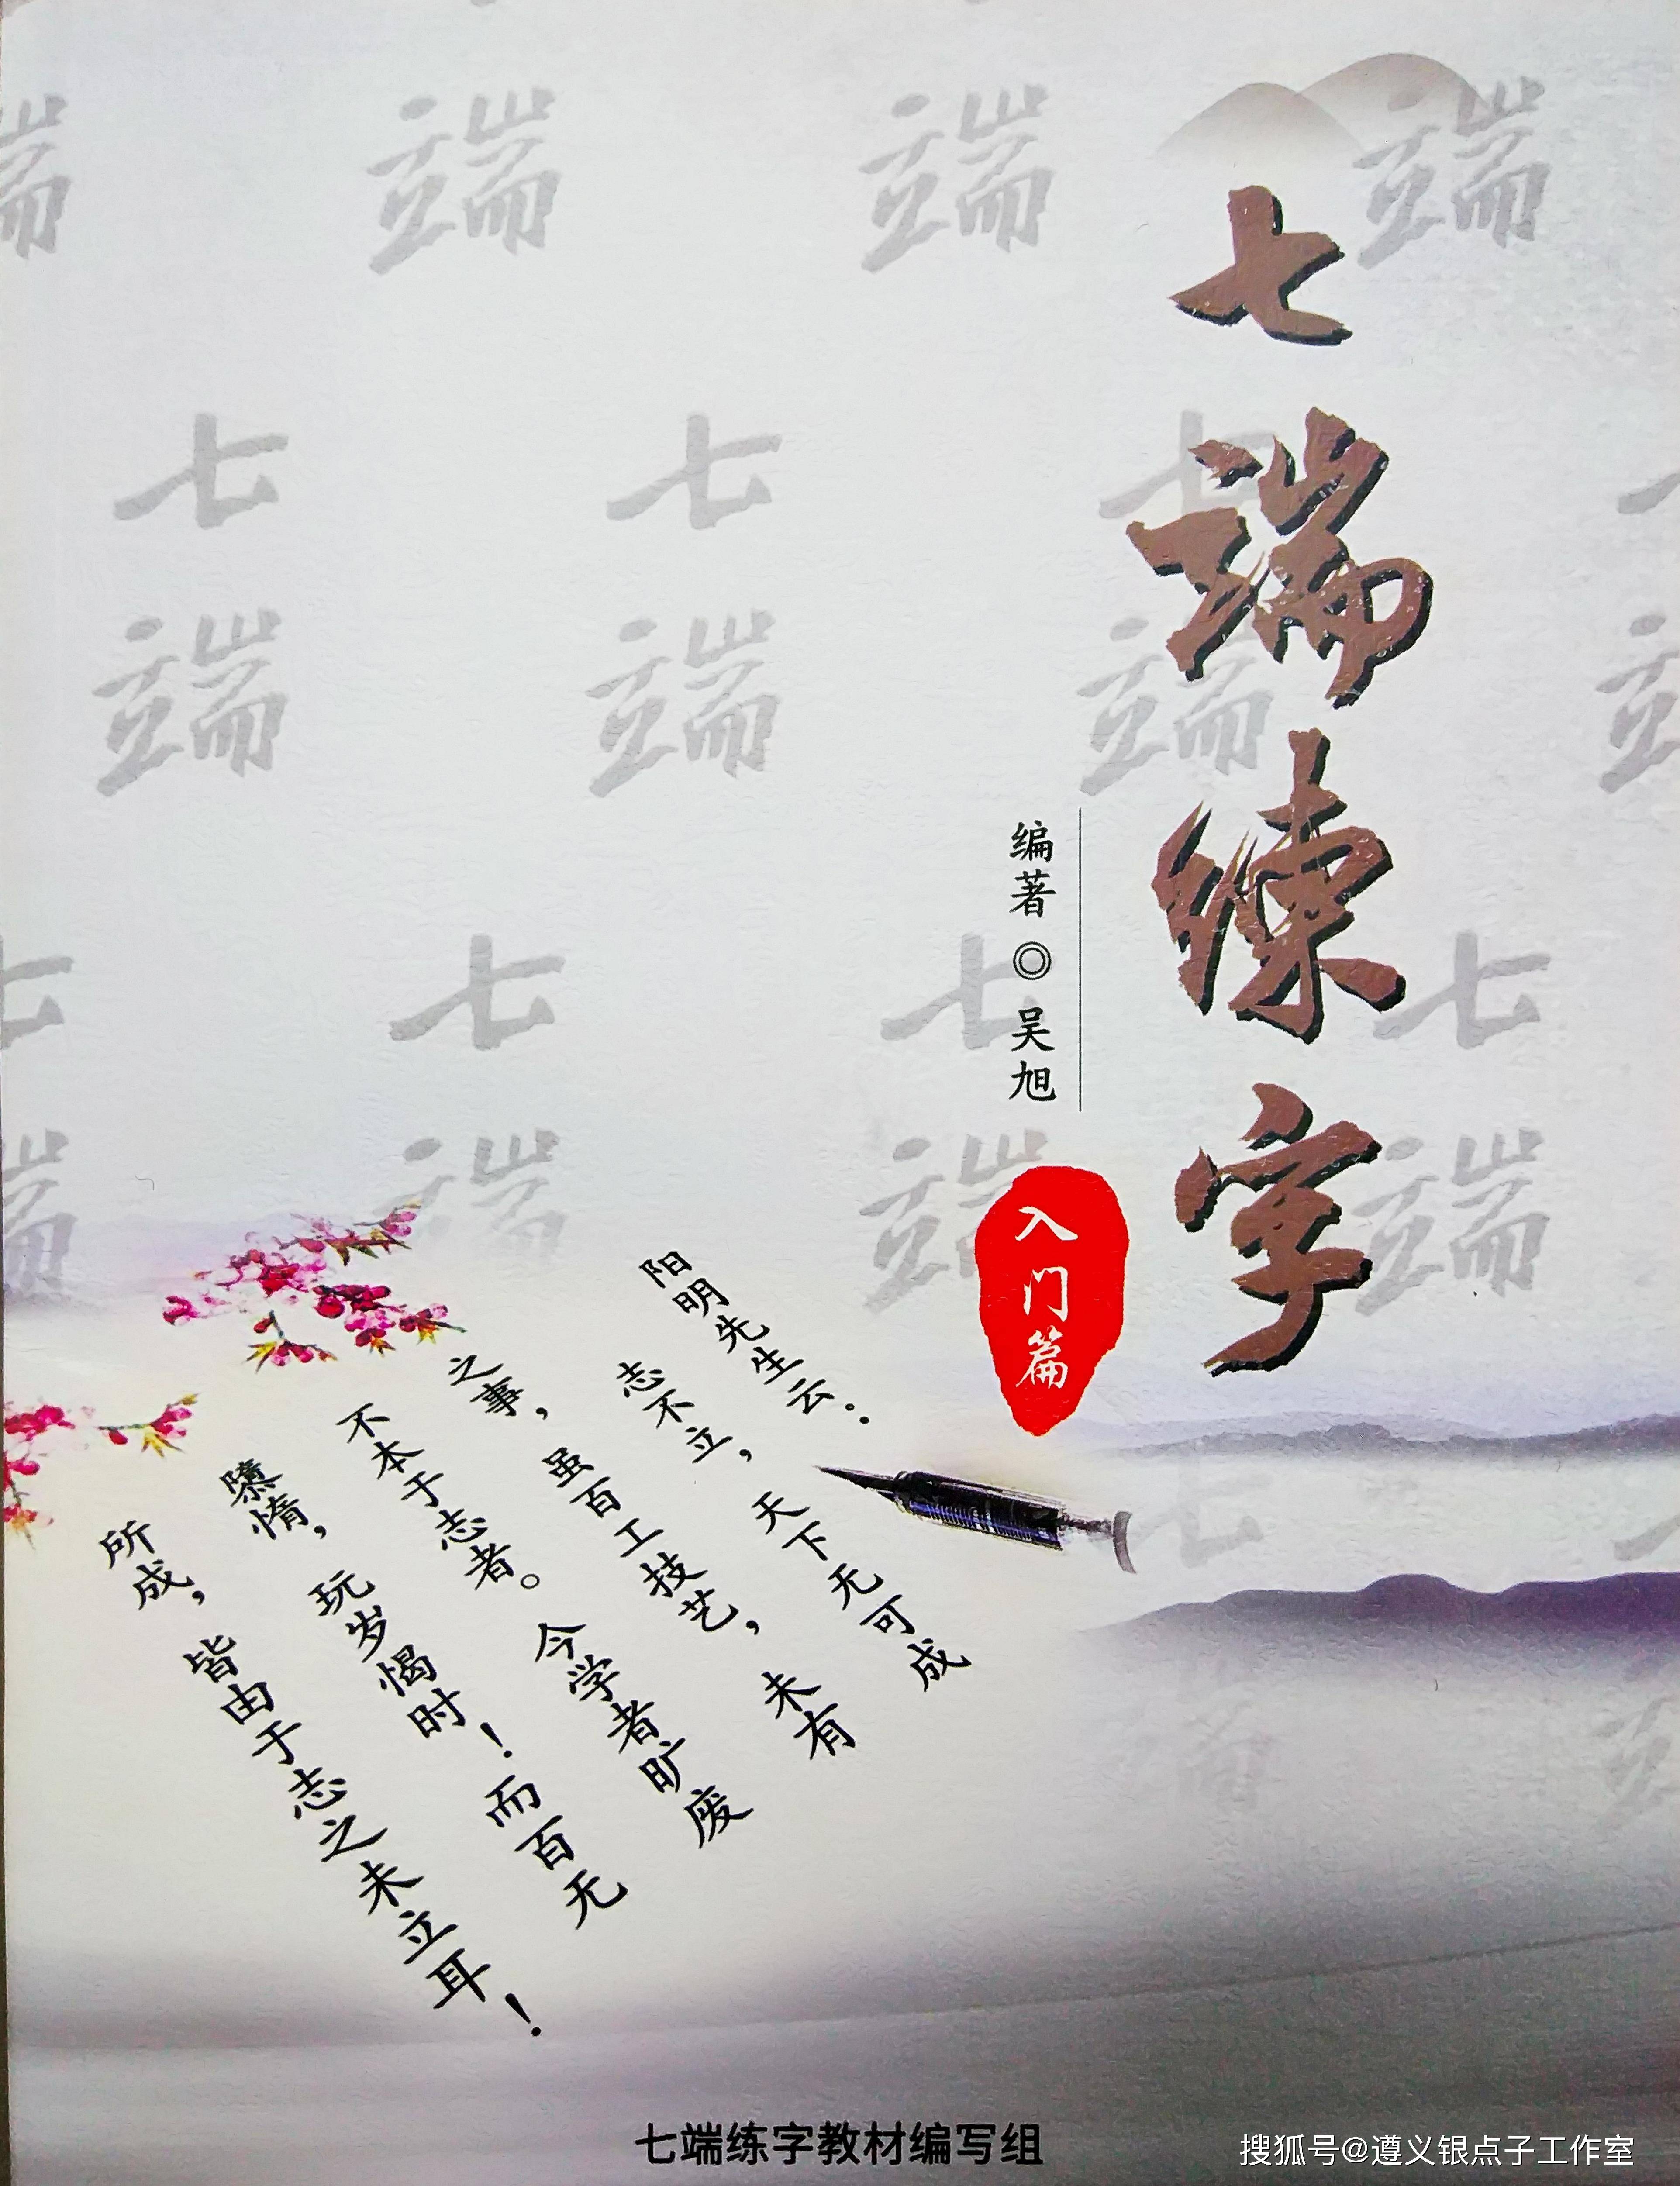 七端练字
编著◎吴旭
入门篇
阳明先生云：
志不立，天下无可成
之事，虽百工技艺，未有
不本于志者。今学者旷废
隳惰，玩岁愒时！而百无
所成，皆由于志之未立耳！
七端练字教材编写组
搜狐号@遵义银点子工作室